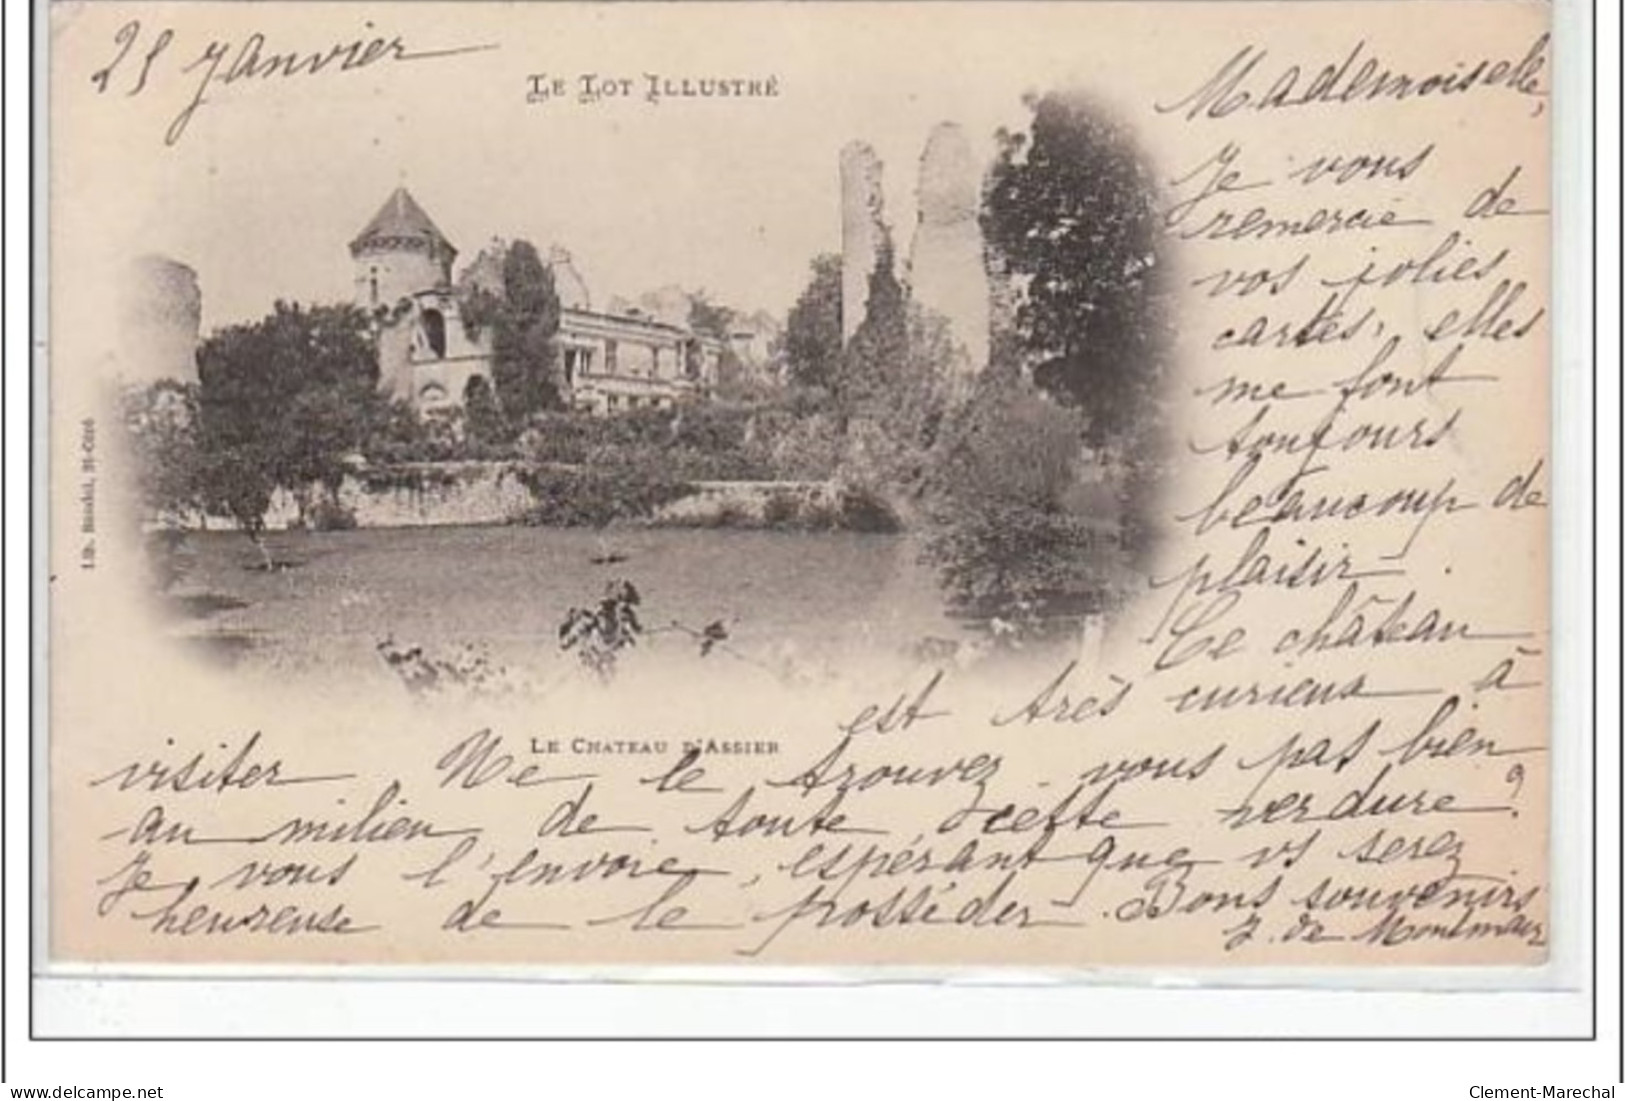 25 Janvier
LE LOT ILLUSTRÉ
Mademoiselle,
Je vous
remercie de
vos jolies
cartes, elles
me font
toujours
beaucoup de
plaisir.
Ce château
est très curieux à
LE CHATEAU D'ASSIER
visiter. Ne le trouvez vous pas bien
au milieu de toute cette verdure ?
Je vous l'envoie, espérant que vs serez
heureuse de le posséder. Bons souvenirs
J. de Montmaur
Lib. St-Céré
delcampe.net
Clement-Marechal